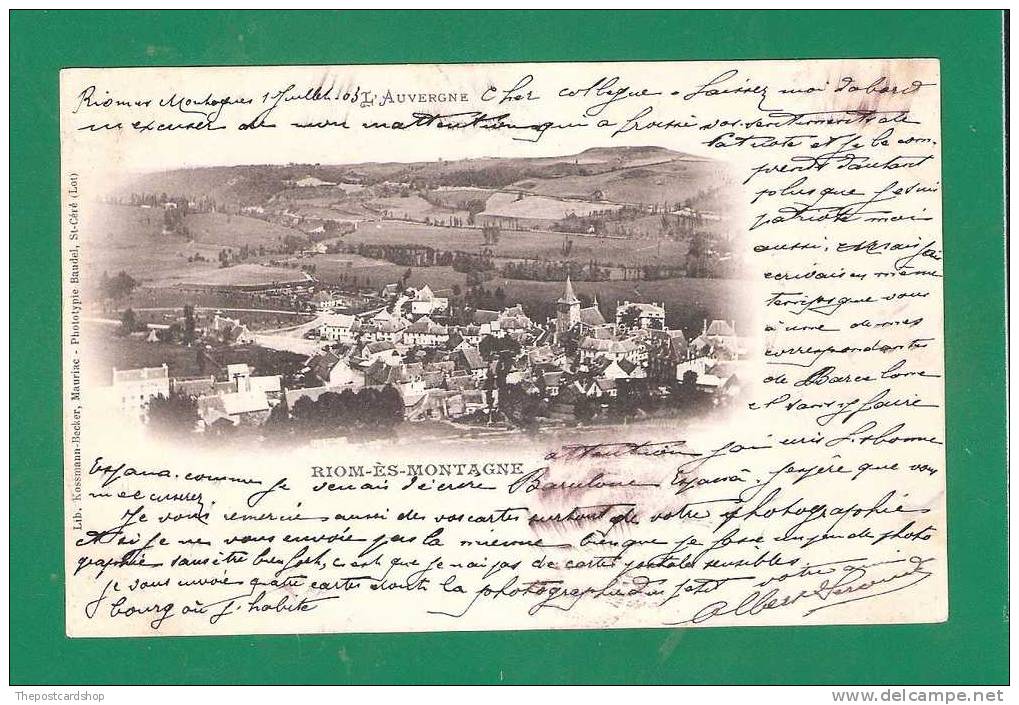 L'AUVERGNE
Riom es Montagnes 1 Juillet 03 Cher collègue. Laissez moi d'abord
m'excuser de mon inattention qui a froissé vos sentiments de
Patriote et je le com-
prends d'autant
plus que je suis
patriote moi
aussi, mais j'
écrivais en même
temps que vous
à une de mes
correspondantes
de Barcelone
et sans y faire
attention j'ai mis Lisbonne
Espana. comme je venais d'écrire Barcelone Espana. J'espère que vous
m'excuserez.
RIOM-ÈS-MONTAGNE
Je vous remercie aussi des vos cartes surtout de votre photographie
et si je ne vous envoie pas la mienne bien que je fasse un peu de photo
graphie sans être bien fort, c'est que je n'ai pas de cartes postales sensibles.
Je vous envoie quatre cartes dont la photographie du petit votre ami
bourg où j'habite Albert
Lib. Kossmann-Becker, Mauriac - Phototypie Baudel, St-Céré (Lot)
Thepostcardshop
www.delcampe.net